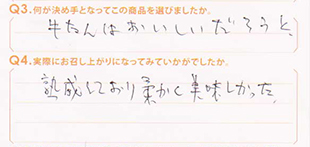 Q3.何が決め手となってこの商品を選びましたか。
牛たんはおいしいだろうと、
Q4.実際にお召し上がりになってみていかがでしたか。
熟成しており柔かく美味しかった。